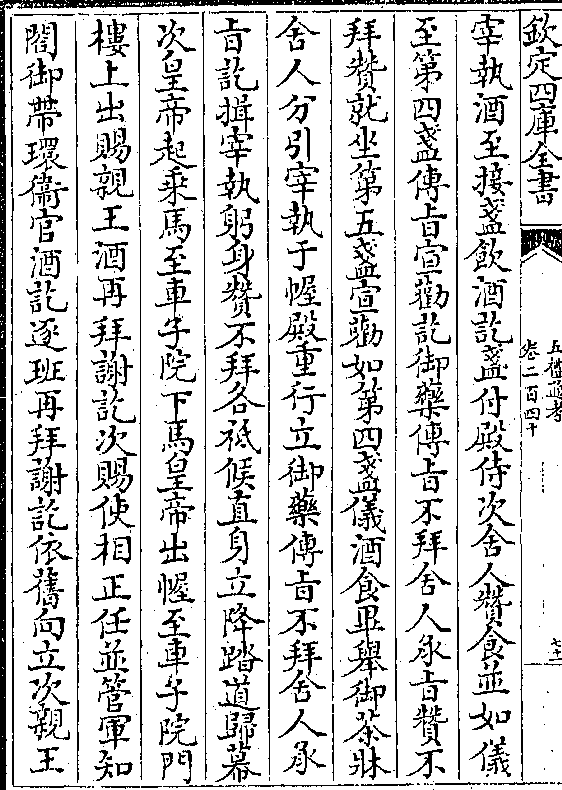 欽定四庫全書
五禮通考
卷二百四十
七十一
宰執酒至接盞飲酒訖盞付殿侍次舍人贊食並如儀
至第四盞傳旨宣勸訖御藥傳旨不拜舍人承旨贊不
拜贊就坐第五盞宣勸如第四盞儀酒食畢舉御茶牀
舍人分引宰執于幄殿重行立御藥傳旨不拜舍人承
旨訖揖宰執躬身贊不拜各祗候直身立降踏道歸幕
次皇帝起乗馬至車子院下馬皇帝出幄至車子院門
樓上出賜親王酒再拜謝訖次賜使相正任並管軍知
閤御帶環衞官酒訖逐班再拜謝訖依舊向立次親王